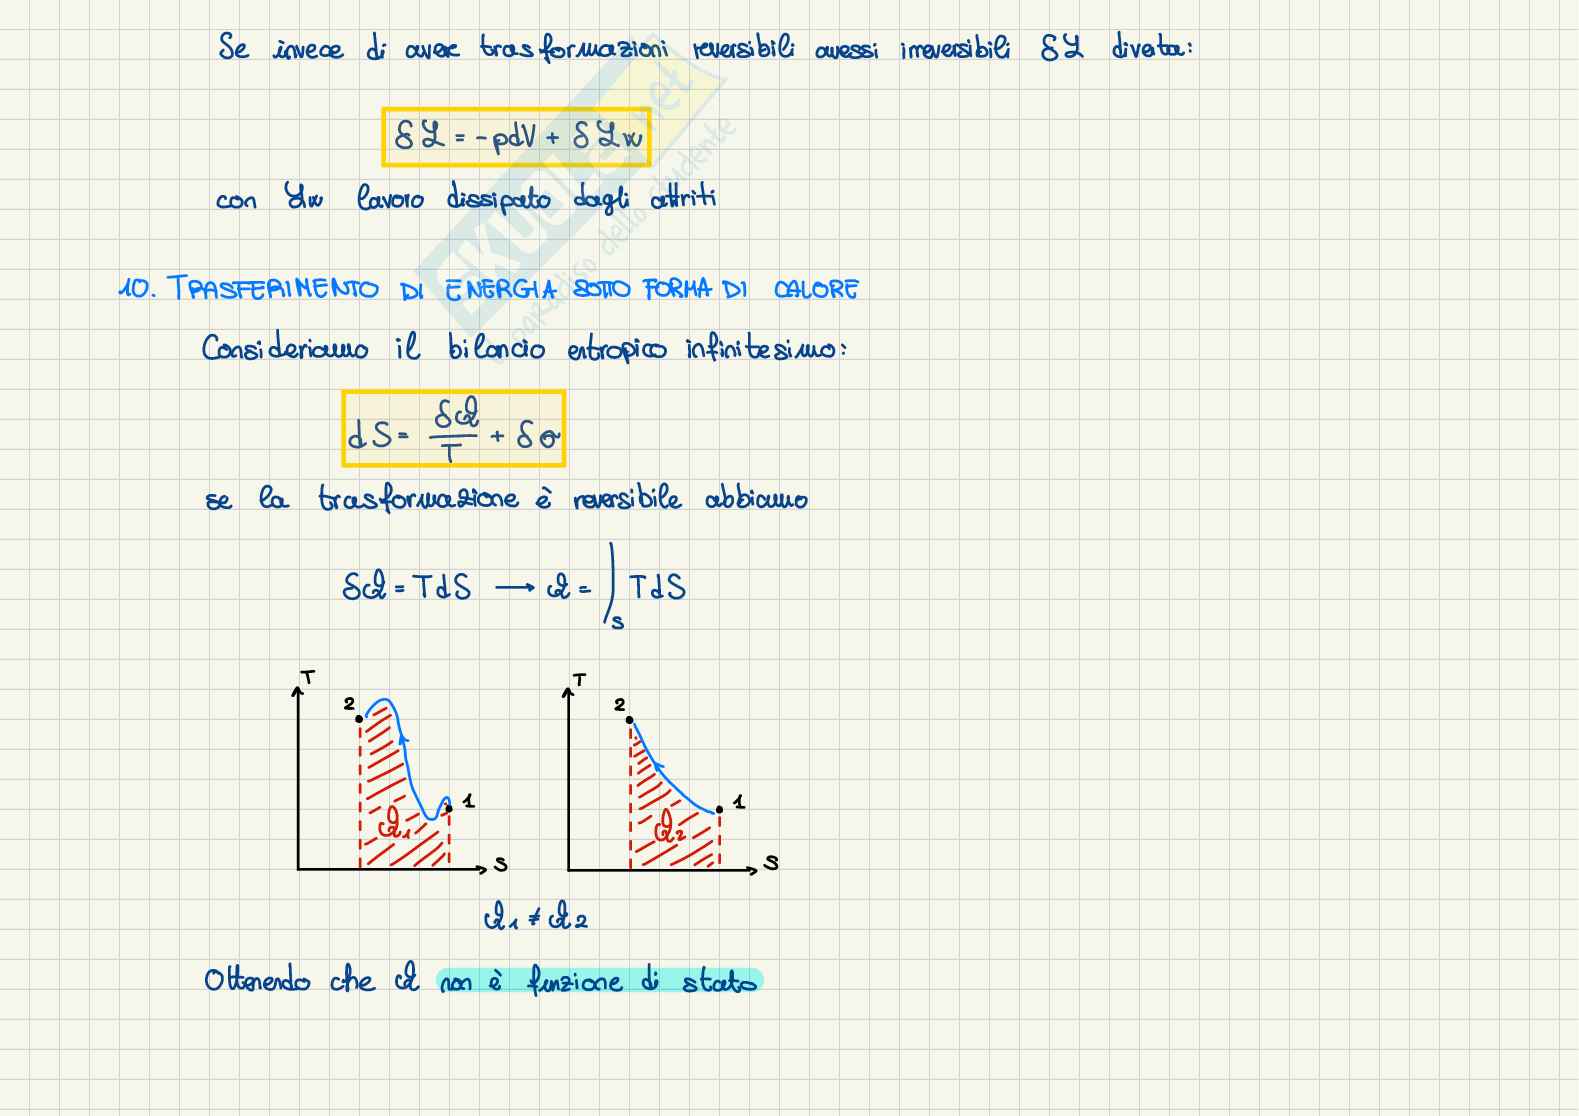 Se invece di avere trasformazioni reversibili avessi irreversibili δL diventa:
δL = -pdV + δLw
con Lw lavoro dissipato dagli attriti
10. TRASFERIMENTO DI ENERGIA SOTTO FORMA DI CALORE
Consideriamo il bilancio entropico infinitesimo:
dS = δQ/T + δσ
se la trasformazione è reversibile abbiamo
δQ = TdS ⟶ Q = ∫s TdS
T
2
1
Q1
S
T
2
1
Q2
S
Q1 ≠ Q2
Ottenendo che Q non è funzione di stato
skuola.net
paradiso dello studente